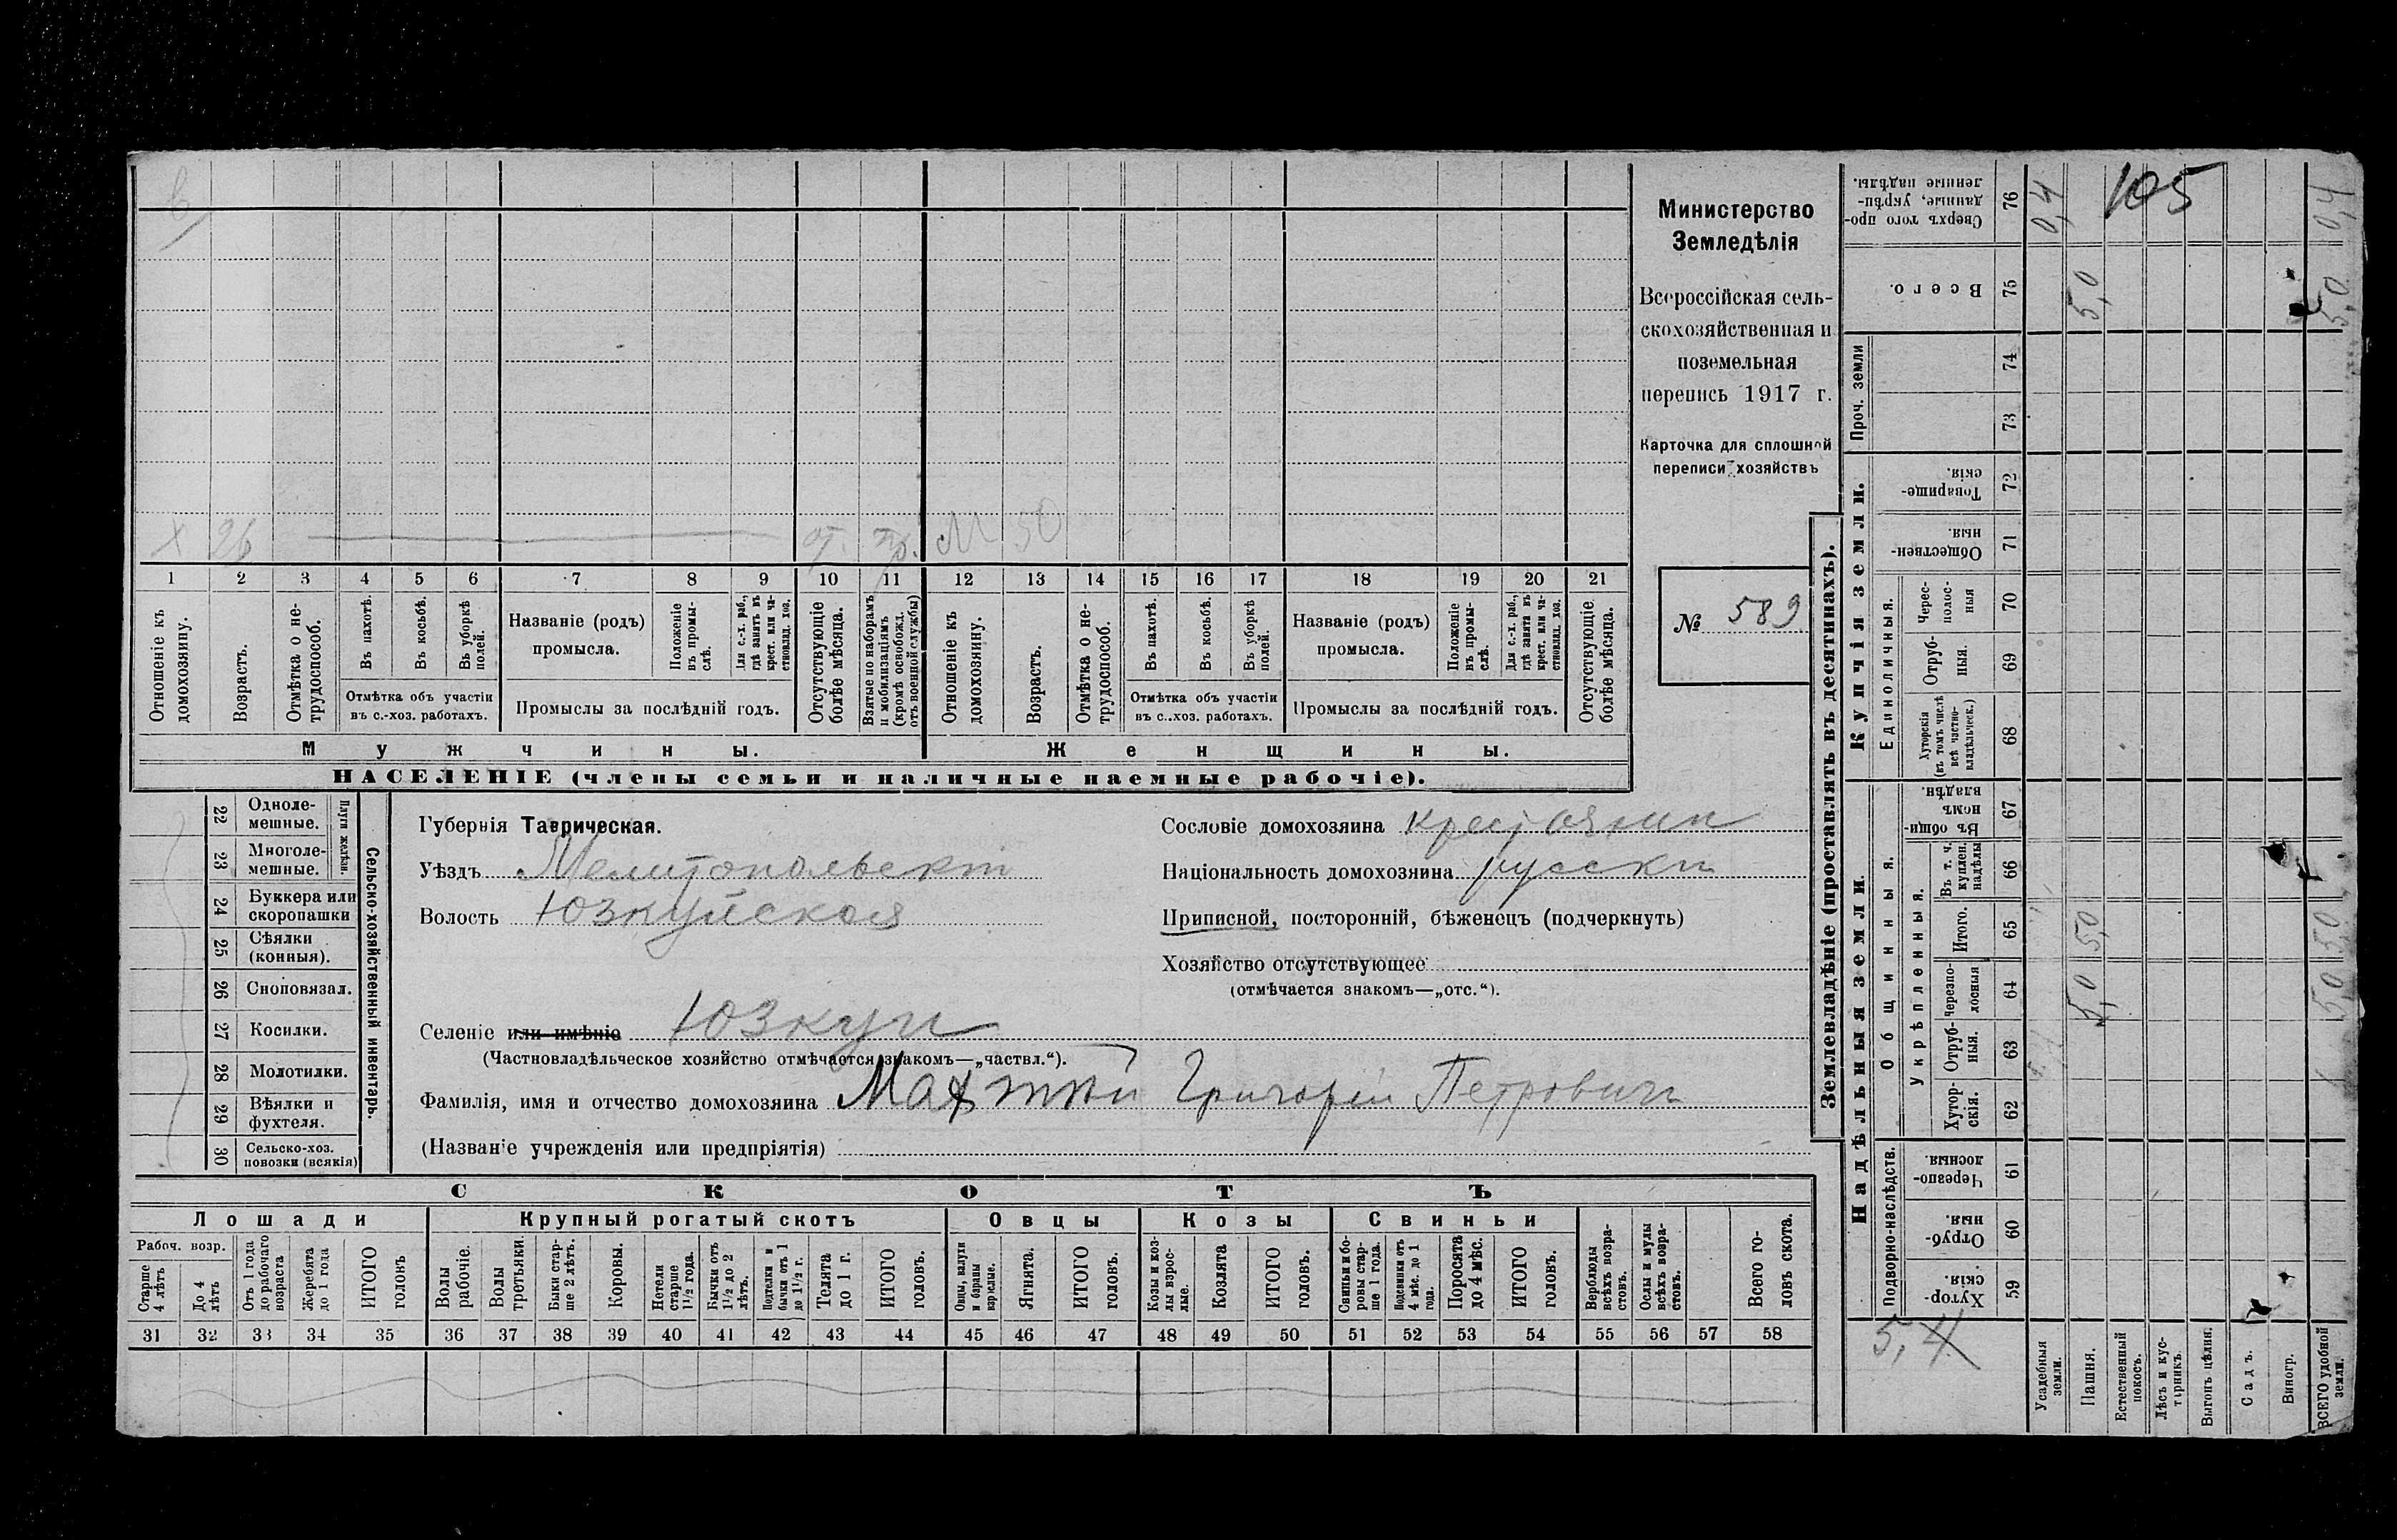 105
Министерство
Земледѣлія
Всероссійская сель-
скохозяйственная и
поземельная
перепись 1917 г.
Карточка для сплошной
переписи хозяйствъ
№ 589
х 26 от. М 50
1 2 3 4 5 6 7 8 9 10 11 12 13 14 15 16 17 18 19 20 21
Отношеніе къ домохозяину.
Возрастъ.
Отмѣтка о не-трудоспособ.
Въ пахотѣ.
Въ косьбѣ.
Въ уборкѣ полей.
Отмѣтка объ участіи
въ с.-хоз. работахъ.
Названіе (родъ)
промысла.
Положеніе въ промы-слѣ.
Для с.-х. раб., гдѣ занятъ въ крест. или ча-стновлад. хоз.
Промыслы за послѣдній годъ.
Отсутствующіе болѣе мѣсяца.
Взятые по наборамъ и мобилизаціямъ (кромѣ освобожд. отъ военной службы)
Отношеніе къ домохозяину.
Возрастъ.
Отмѣтка о не-трудоспособ.
Въ пахотѣ.
Въ косьбѣ.
Въ уборкѣ полей.
Отмѣтка объ участіи
въ с..хоз. работахъ.
Названіе (родъ)
промысла.
Положеніе въ промы-слѣ.
Для с.-х. раб., гдѣ занята въ крест. или ча-стновлад. хоз.
Промыслы за послѣдній годъ.
Отсутствующіе болѣе мѣсяца.
Мужчины. Женщины.
НАСЕЛЕНІЕ (члены семьи и наличные наемные рабочіе).
Сельско-хозяйственный инвентарь.
Плуги желѣзн.
22 Одноле-мешные.
23 Многоле-мешные.
24 Буккера или скоропашки
25 Сѣялки (конныя).
26 Сноповязал.
27 Косилки.
28 Молотилки.
29 Вѣялки и фухтеля.
30 Сельско-хоз. повозки (всякія)
Губернія Таврическая.
Уѣздъ Мелитопольскій
Волость Юзкуйская
Селеніе или имѣніе Юзкуи
(Частновладѣльческое хозяйство отмѣчается знакомъ—„частвл.“).
Фамилія, имя и отчество домохозяина Григорій Петровичъ
(Названіе учрежденія или предпріятія)
Сословіе домохозяина крестьянин
Національность домохозяина русски
Приписной, посторонній, бѣженецъ (подчеркнуть)
Хозяйство отсутствующее
(отмѣчается знакомъ—„отс.“).
СКОТЪ
Лошади Крупный рогатый скотъ Овцы Козы Свиньи
Рабоч. возр.
Старше 4 лѣтъ
До 4 лѣтъ
Отъ 1 года до рабочаго возраста
Жеребята до 1 года
ИТОГО головъ
Волы рабочіе.
Волы третьяки.
Быки стар-ше 2 лѣтъ.
Коровы.
Нетели старше 1½ года.
Бычки отъ 1½ до 2 лѣтъ.
Подтелки и бычки отъ 1 до 1½ г.
Телята до 1 г.
ИТОГО головъ.
Овцы, валухи и бараны взрослые.
Ягнята.
ИТОГО головъ.
Козы и коз-лы взрос-лые.
Козлята
ИТОГО головъ.
Свиньи и бо-ровы стар-ше 1 года.
Подсвинки отъ 4 мѣс. до 1 года.
Поросята до 4 мѣс.
ИТОГО головъ.
Верблюды всѣхъ возра-стовъ.
Ослы и мулы всѣхъ возра-стовъ.
Всего го-ловъ скота.
31 32 33 34 35 36 37 38 39 40 41 42 43 44 45 46 47 48 49 50 51 52 53 54 55 56 57 58
Землевладѣніе (проставлять въ десятинахъ).
Надѣльныя земли.
Купчія земли.
Подворно-наслѣдств.
Общинныя.
Укрѣпленныя.
Единоличныя.
Проч. земли
Сверхъ того про-данные, укрѣп-ленные надѣлы. 76 0,4 0,4
Всего. 75 5,0 5,0
74
73
Товарище-скія. 72
Обществен-ныя. 71
Черес-полос-ныя 70
Отруб-ныя. 69
Хуторскія (въ томъ числѣ всѣ частно-владѣльческ.) 68
Въ общи-номъ владѣн. 67
Въ т. ч. куплен. надѣлы 66
Итого. 65 5,0 5,0
Черезпо-лосныя 64 5,0 5,0
Отруб-ныя. 63
Хутор-скія. 62
Черезпо-лосныя. 61
Отруб-ныя. 60
Хутор-скія. 59
5,4
Усадебныя земли.
Пашня.
Естественный покосъ.
Лѣсъ и кус-тарникъ.
Выгонъ цѣлин.
Садъ.
Виногр.
ВСЕГО удобной земли.